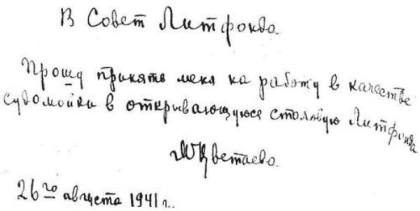 В Совет Литфонда.
Прошу принять меня на работу в качестве
судомойки в открывающуюся столовую Литфонда.
МЦветаева
26го августа 1941 г.